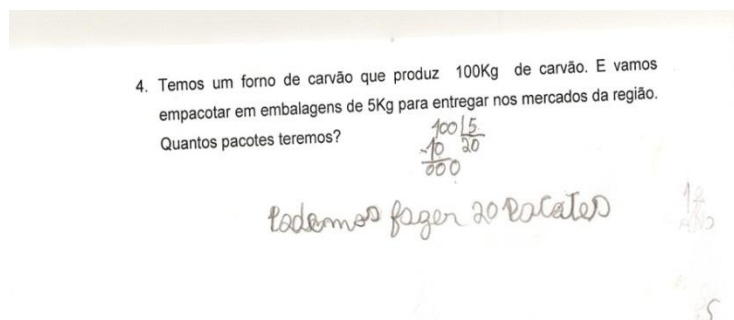 4. Temos um forno de carvão que produz 100Kg de carvão. E vamos
empacotar em embalagens de 5Kg para entregar nos mercados da região.
Quantos pacotes teremos?
100 5
-10 20
000
Podemos fazer 20 Pacotes